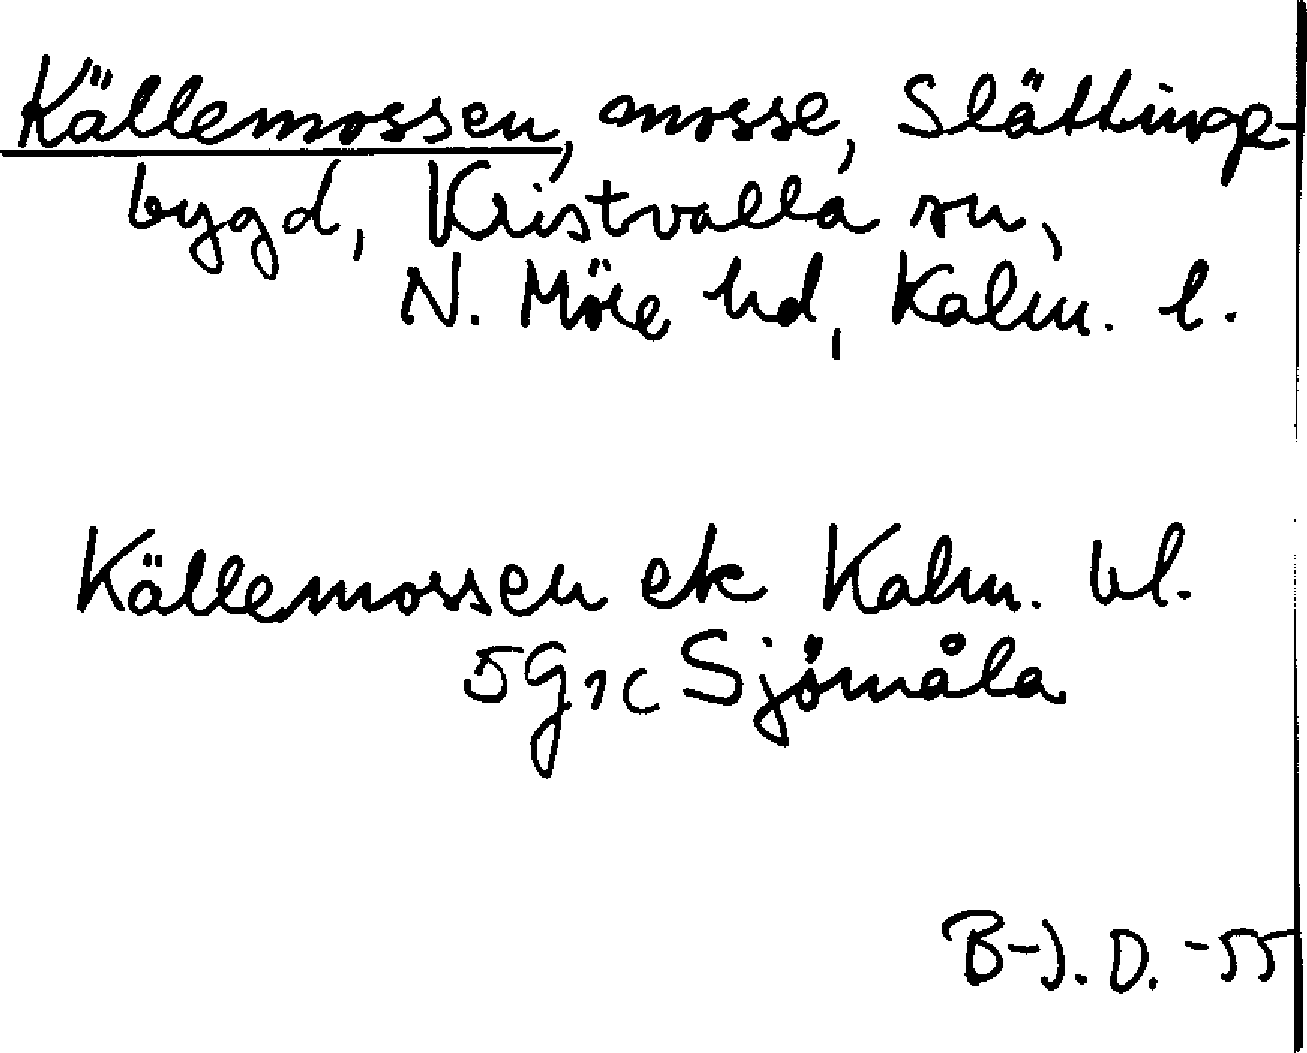 Källemossen, mosse, Slättinge-
bygd, Kristvalla sn,
N. Möre hd, Kalm. l.
Källemossen ek Kalm. bl.
5G1c Sjömåla
B-J. D. -55